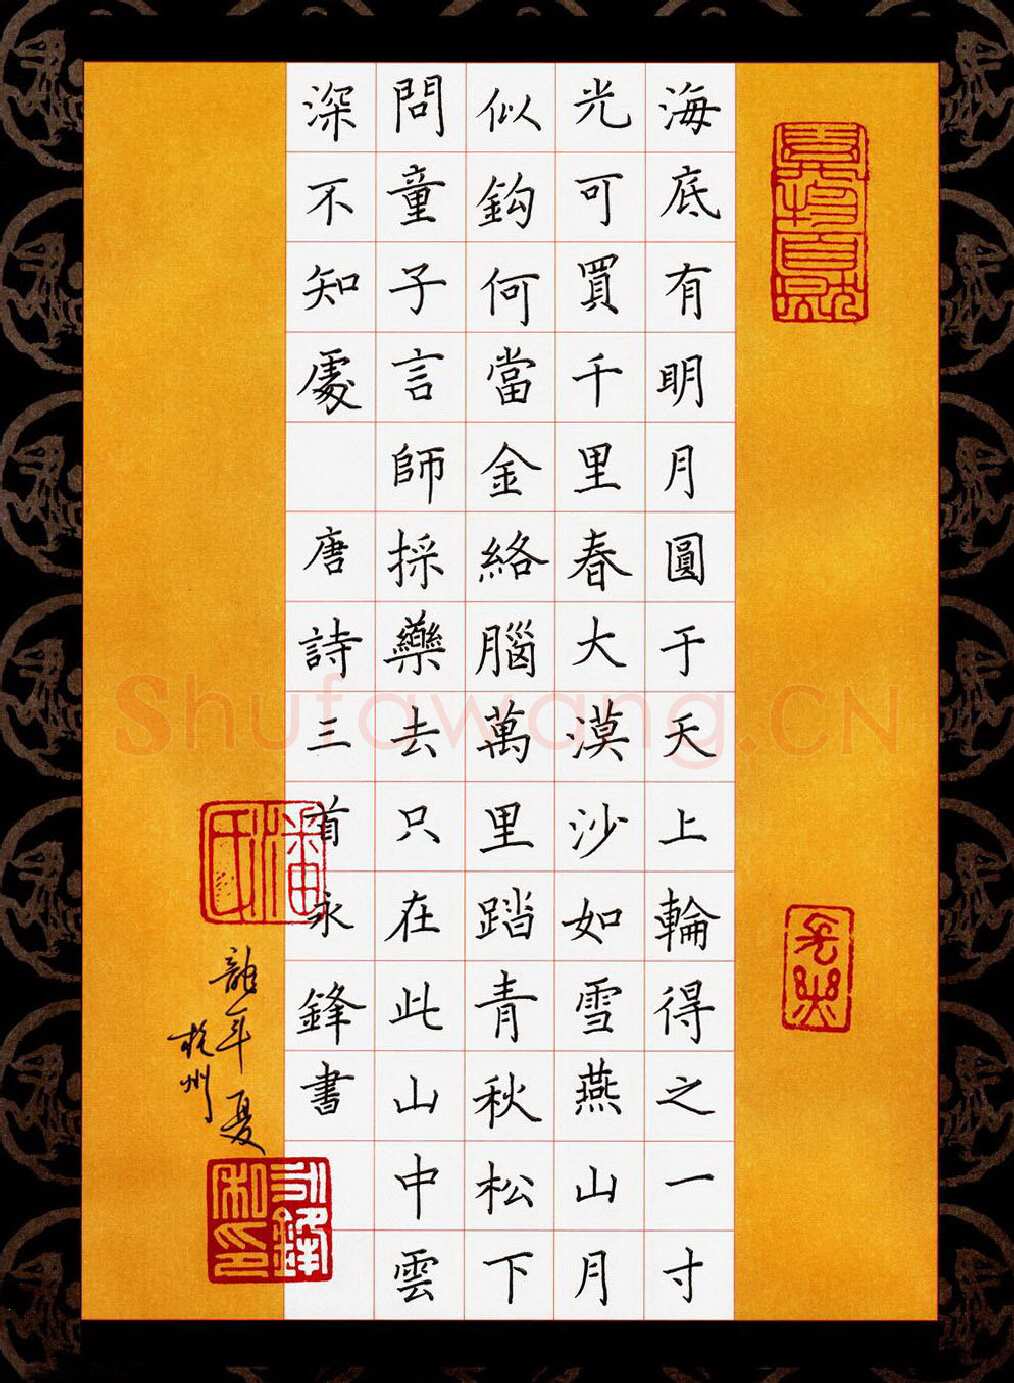 海底有明月圓于天上輪得之一寸
光可買千里春大漠沙如雪燕山月
似鈎何當金絡腦萬里踏青秋松下
問童子言師採藥去只在此山中雲
深不知處 唐詩三首永鋒書
龍年夏
杭州
Shufawang.CN